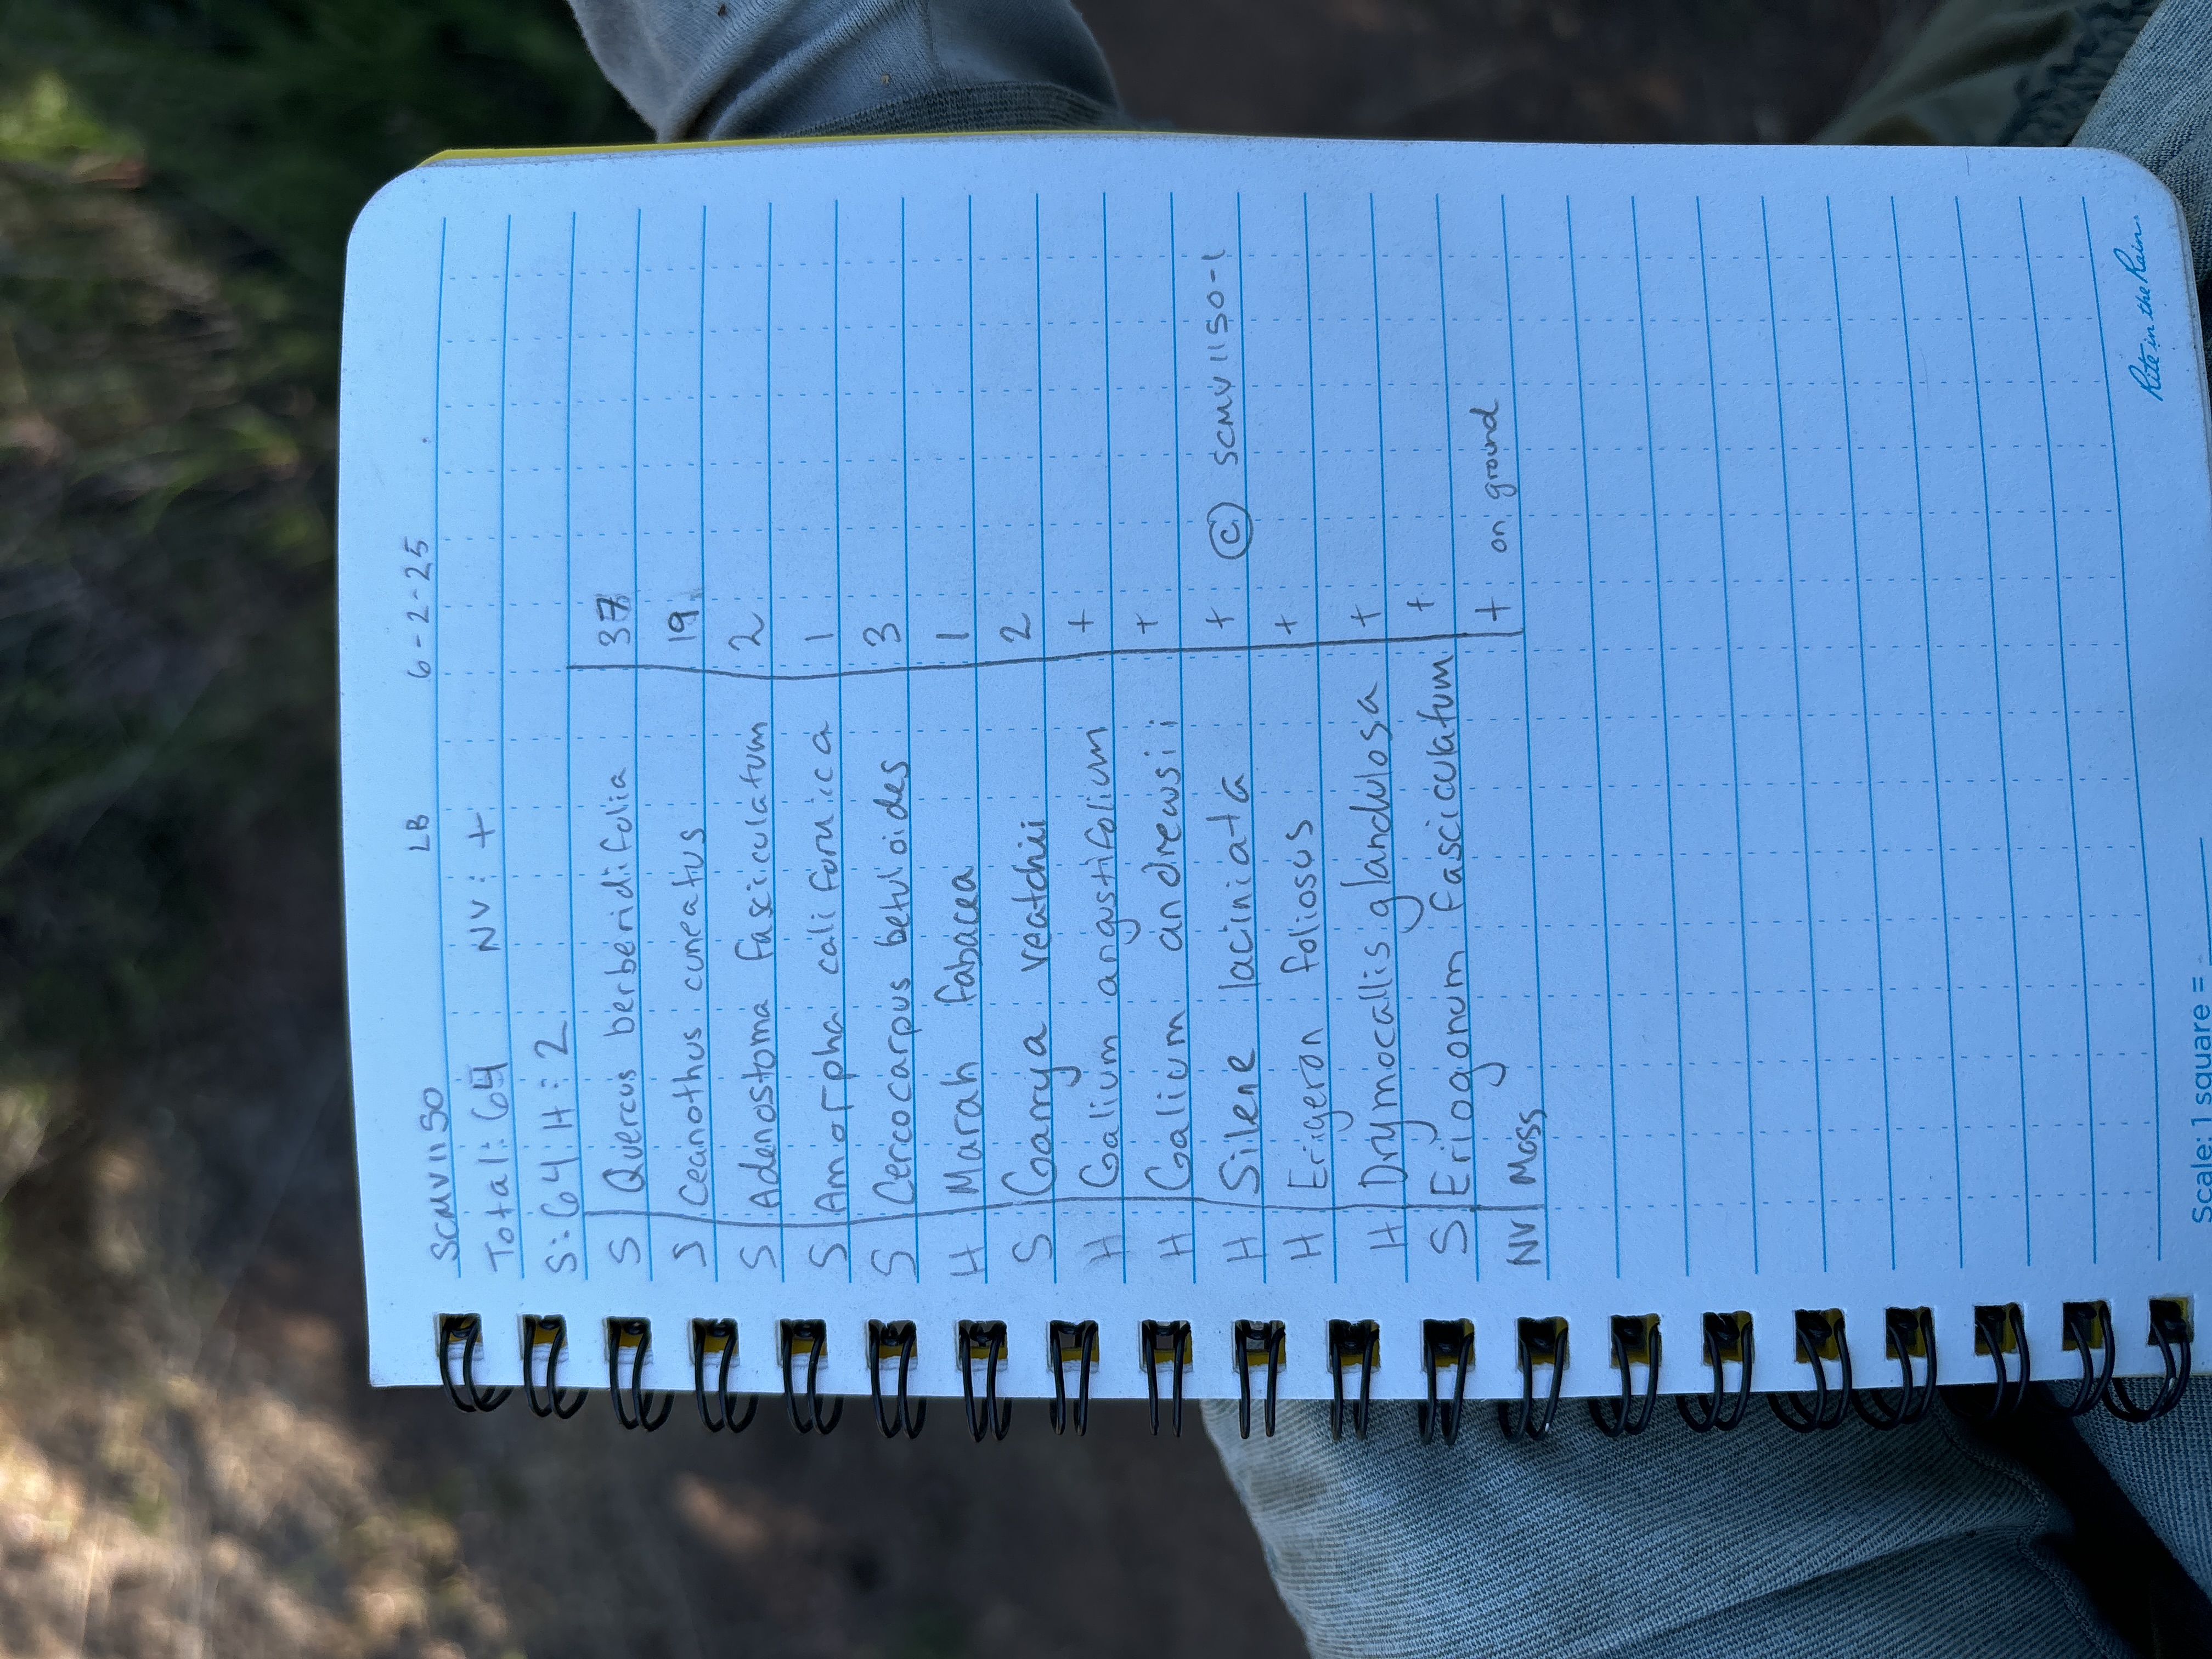 SCMV1150 LB 6-2-25
Total: 64 NV: +
S: 64 H: 2
S Quercus berberidifolia 37
S Ceanothus cuneatus 19
S Adenostoma fasciculatum 2
S Amorpha californica 1
S Cercocarpus betuloides 3
H Marah fabacea 1
S Garrya veatchii 2
H Galium angustifolium +
H Galium andrewsii +
H Silene laciniata + © SCMV1150-1
H Erigeron foliosus +
H Drymocallis glandulosa +
S Eriogonum fasciculatum +
NV Moss + on ground
Scale: 1 square =
Rite in the Rain